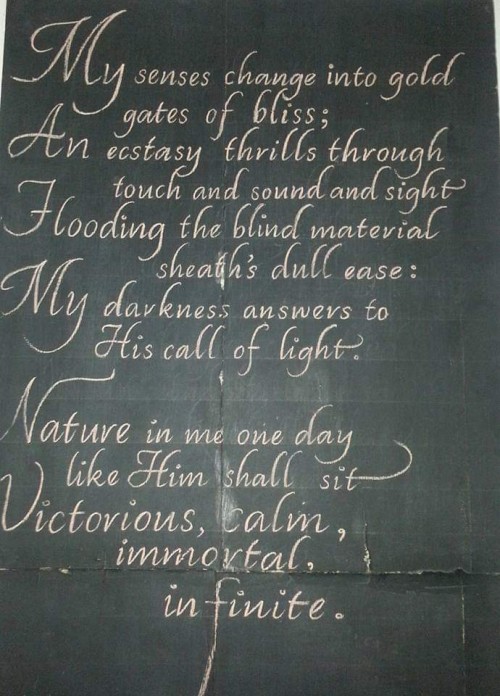 My senses change into gold
gates of bliss;
An ecstasy thrills through
touch and sound and sight
Flooding the blind material
sheath's dull ease:
My darkness answers to
His call of light.
Nature in me one day
like Him shall sit
Victorious, calm,
immortal,
infinite.